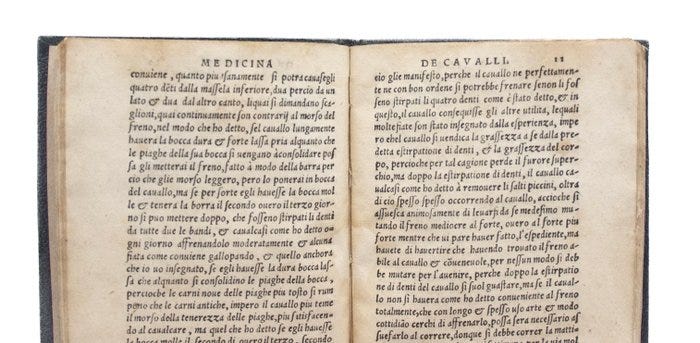 MEDICINA
conuiene, quanto piu sanamente si potra cauasegli
quatro dēti dalla massela inferiore, dua percio da un
lato & dua dal altro canto, liquai si dimandano sca-
glioni, quai continuamente son contrarij al morso del
freno, nel modo che ho detto, sel cauallo lungamente
hauera la bocca dura & forte lassa pria alquanto che
le piaghe della sua bocca si uengano à consolidare po s
sa gli metterai il freno, fatto à modo della barra per
cio che glie morso leggero, pero lo ponerai in bocca
del cauallo, ma se per sorte egli hauesse la bocca mol
le & tenera la borra il secondo ouero il terzo gior-
no si puo mettere doppo, che fosseno stirpati li denti
da tutte due le bandi, & caualcasi come ho detto o-
gni giorno affrenandolo moderatamente & alcuna
fiata come conuiene gallopando, & quello anchora
che io uo insegnato, se egli hauesse la dura bocca las-
sa che alquanto si consolidino le piaghe di bocca,
perciocbe le carni noue delle piaghe piu tosto si rum
peno che le carni antiche, impero il cauallo piu teme
il morso della tenerezza delle piaghe, piu satisfacen-
do al caualcare, ma quel che ho detto se egli hauesse
la bocca molle il secondo di ouero il terzo
DE CAVALLI. 11
cio glie manifesto, perche il cauallo ne perfettamen-
te ne con bon ordine si potrebbe frenare senon li fos
seno stirpati li quatro denti come è stato detto, & in
questo, il cauallo consequisse gli altre utilita, lequali
molte fiate son stato insegnato dalla esperienza, impe
ro ehel cauallo si uendica la grassezza a se dalla pre-
detta estirpatione di denti, & la grassezza del cor-
po, percioche per tal cagione perde il furore super-
chio, ma doppo la estirpatione di denti, il cauallo ca-
ualcasi come ho detto à remouere li salti piccini, oltra
di cio spesso spesso occorrendo al cauallo, accioche si
assuesca animosamente di leuarsi da se medesimo mu-
tando il freno mediocre al forte, ouero al forte piu
forte mentre che ui pare hauer fatto, l'espediente, ma
hauete di hauertire che hauendo trouato il freno a-
bile al cauallo & cōueneuole, per nessun modo si deb
be mutare per l'auenire, perche doppo la estirpatio
ne di denti del cauallo si suol guastare, ma se il caual-
lo non si hauera come ho detto conueniente al freno
totalmente, che con longo & spesso uso arte & modo
cottidiāo cerchi di affrenarlo, possa sera necessario as
suefarlo al correre, donque si debbe correr la matti-